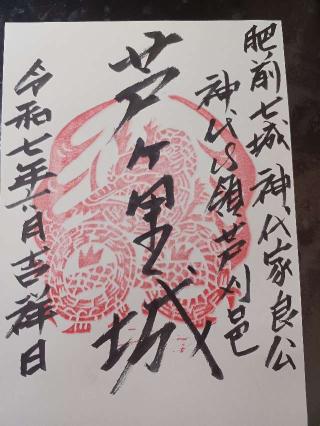 肥前七城 神代家良公
神代領芦刈邑
芦ヶ里城
令和七年六月吉祥日